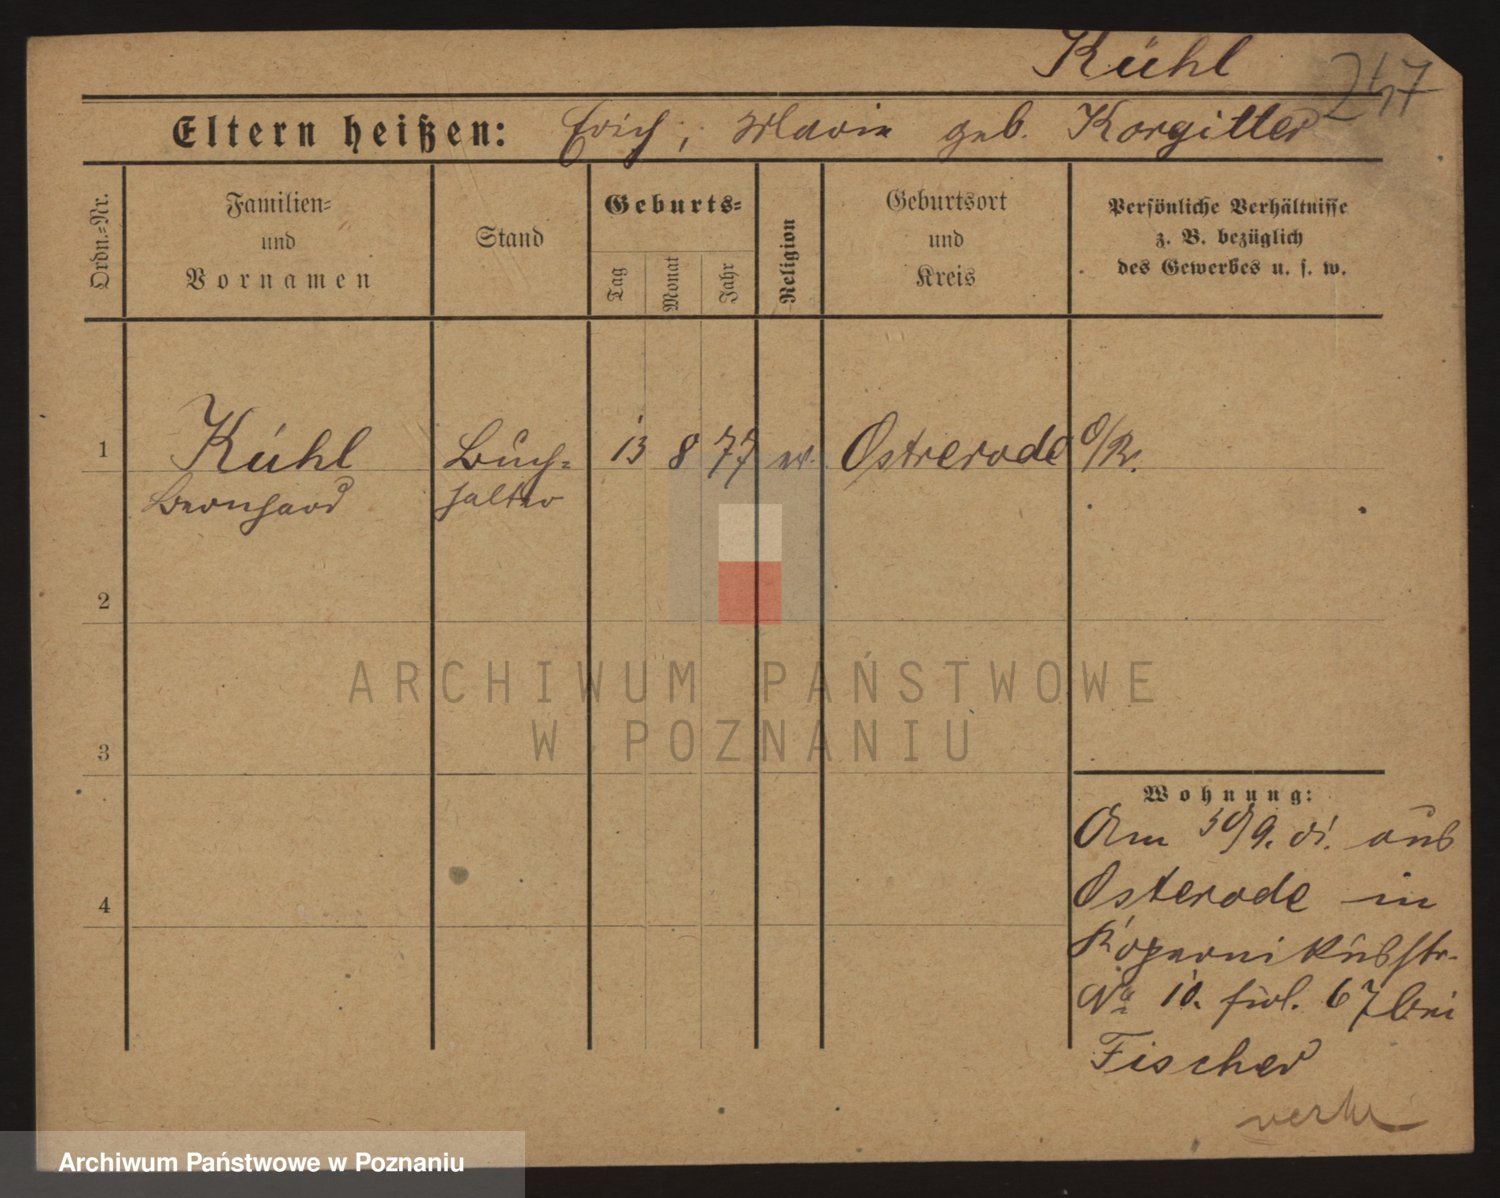 Kühl
247
Eltern heißen: Erich, Marie geb. Korgitter
Ordn.-Nr.
Familien-
und
Vornamen
Stand
Geburts-
Tag
Monat
Jahr
Religion
Geburtsort
und
Kreis
Persönliche Verhältnisse
z. B. bezüglich
des Gewerbes u. s. w.
1 Kühl Buch- 13 8 77 ev. Ostrerode
Bernhard halter
2
ARCHIWUM PAŃSTWOWE
W POZNANIU
3
Wohnung:
Am 30/9. 01. aus
4 Osterode in
Kopernikusstr.
No 10. fol. 67 bei
Fischer
Archiwum Państwowe w Poznaniu